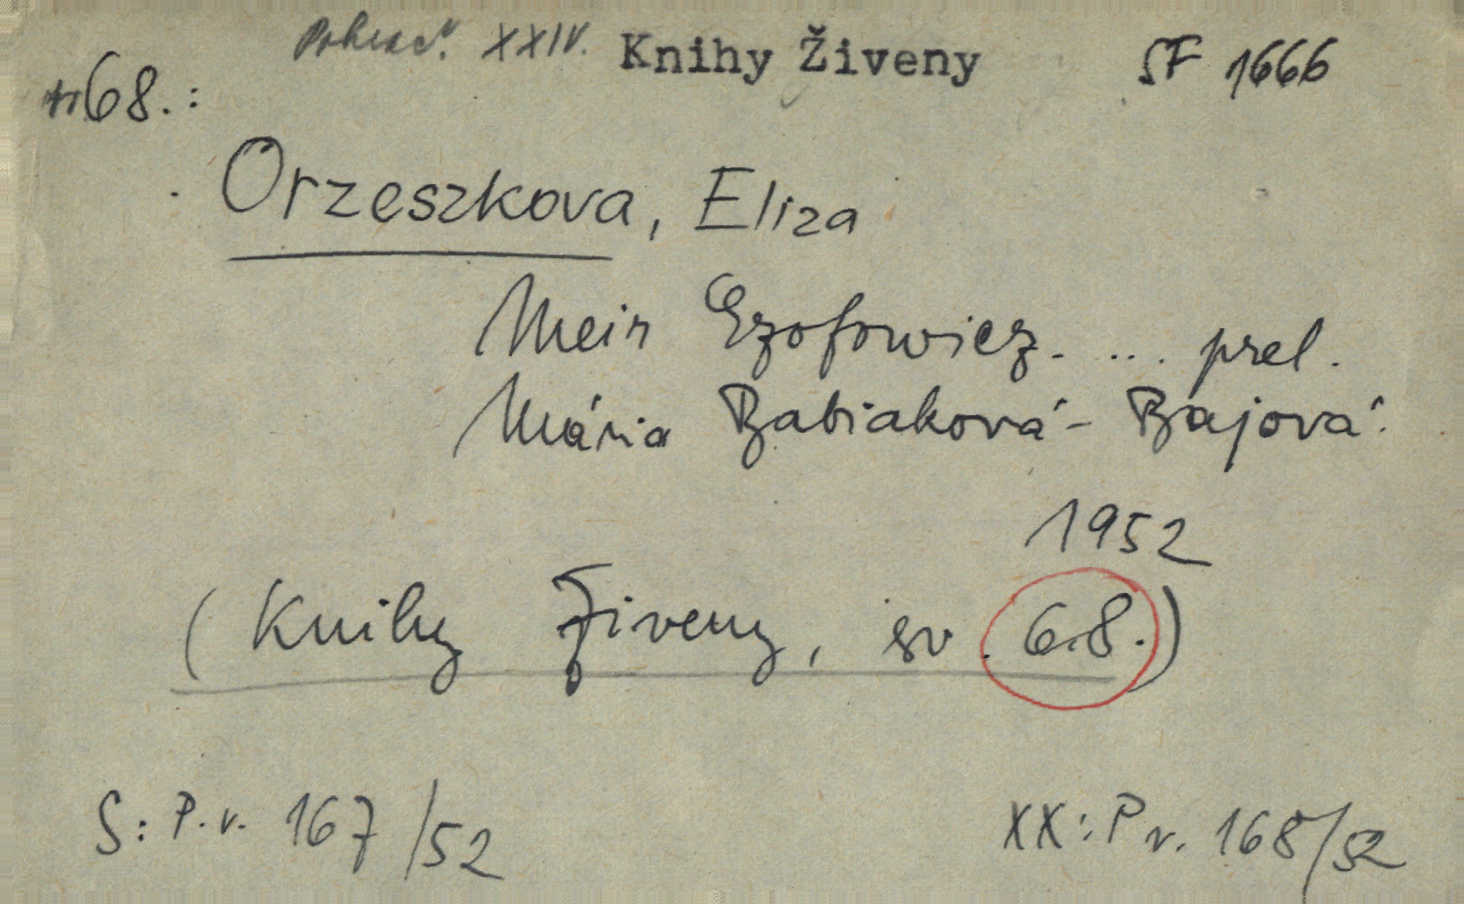 Pokrač. XXIV. Knihy Živeny SF 1666
68.:
Orzeszkova, Eliza
Meir Ezofowicz. ... prel.
Mária Babiaková-Bajová.
1952
(Knihy Živeny, sv. 68.)
S: P.v. 167/52 XX: P v. 168/52